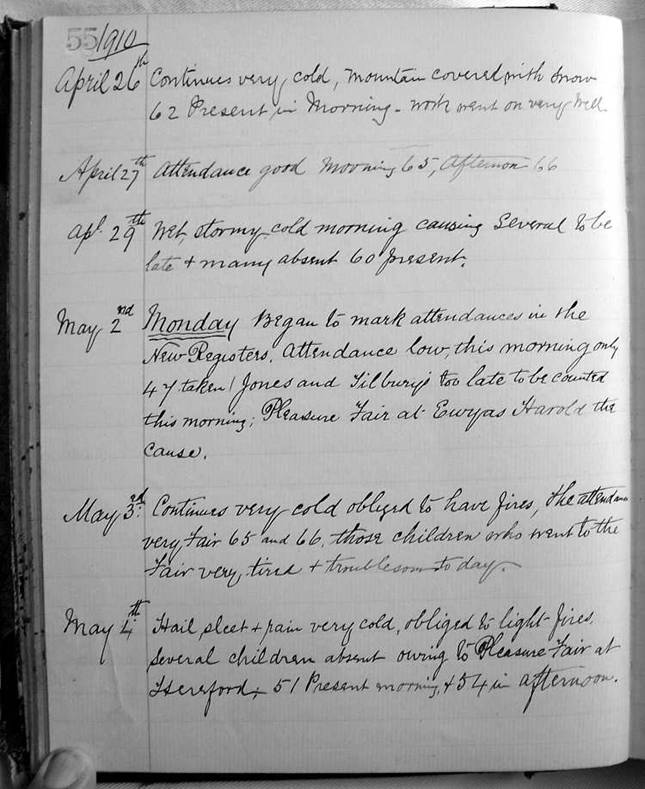 55 1910
April 26th Continues very cold, Mountain covered with Snow
62 Present in Morning - work went on very well.
April 27th Attendance good Morning 65, Afternoon 66
Apl. 29th Wet, stormy cold morning causing Several to be
late & many absent 60 present.
May 2nd Monday Began to mark attendances in the
New Registers. Attendance low, this morning only
47 taken! Jones and Tilburys too late to be counted
this morning; Pleasure Fair at Ewyas Harold the
cause.
May 3rd. Continues very cold obliged to have fires, the attendance
very fair 65 and 66, those children who went to the
Fair very, tired & troublesome to day.
May 4th Hail sleet & rain very cold, obliged to light fires.
Several children absent owing to Pleasure Fair at
Hereford, 51 Present morning, & 54 in afternoon.